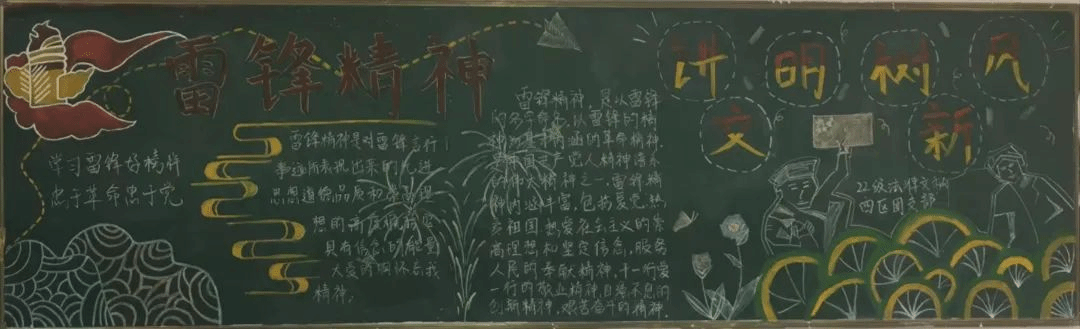 雷锋精神
学习雷锋好榜样
忠于革命忠于党
雷锋精神是对雷锋言行
事迹所表现出来的先进
思想道德品质和崇高理
想的
具有信念的能量
大爱 胸怀忘我
精神。
雷锋精神，是以雷锋
的名字命名，以雷锋的精
神为基本内涵的革命精神，
中国共产党人精神谱系
的伟大精神之一。雷锋精
神内涵丰富，包括爱党热
爱祖国，热爱社会主义的崇
高理想和坚定信念，服务
人民的奉献精神，干一行爱
一行的敬业精神，自强不息的
创新精神，艰苦奋斗的精神。
讲明树风
文新
22级法律文秘
四区团支部